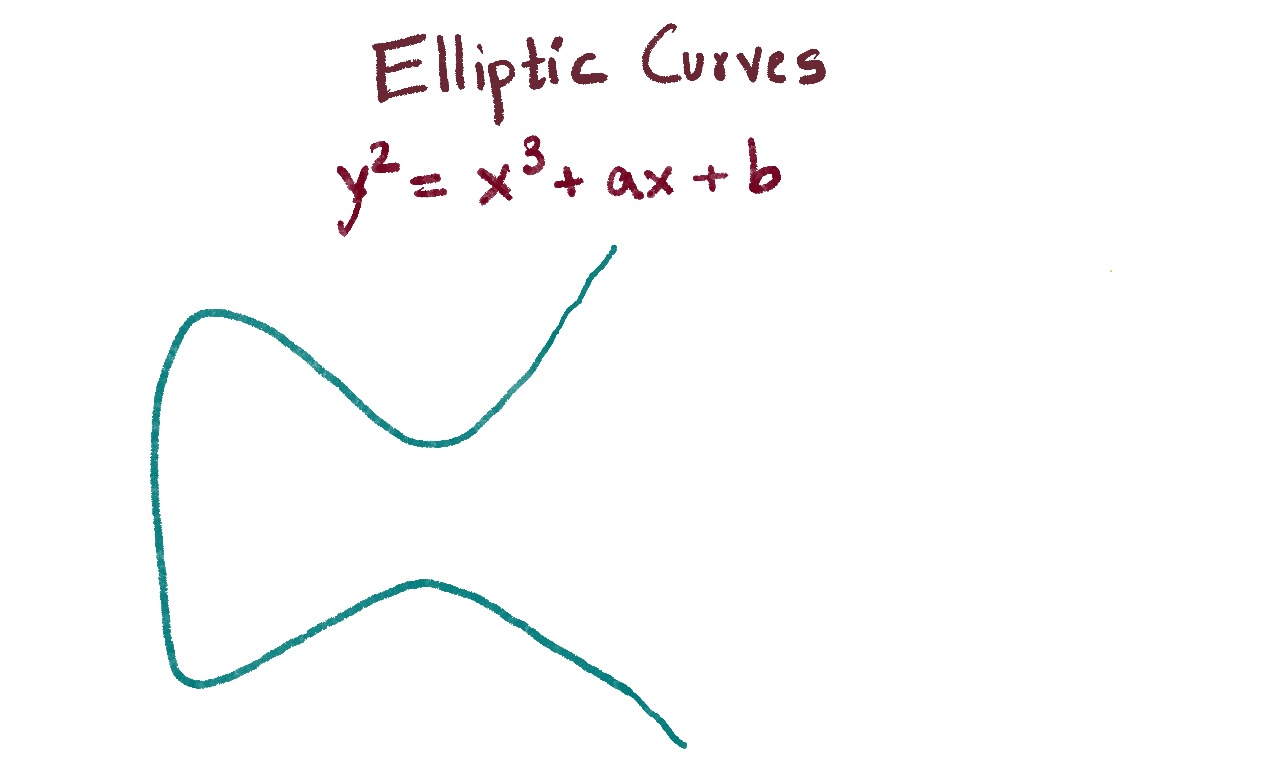 Elliptic Curves
y² = x³ + ax + b